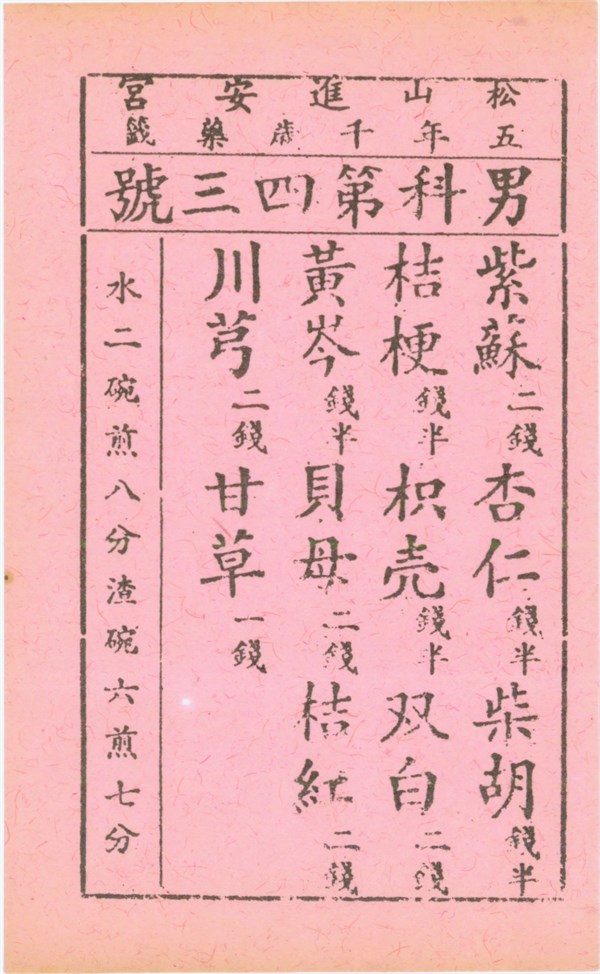 松山進安宮
五年千歲藥籤
男科第四三號
紫蘇二錢杏仁錢半柴胡錢半
桔梗錢半枳壳錢半双白二錢
黃岑錢半貝母二錢桔紅二錢
川芎二錢甘草一錢
水二碗煎八分渣碗六煎七分